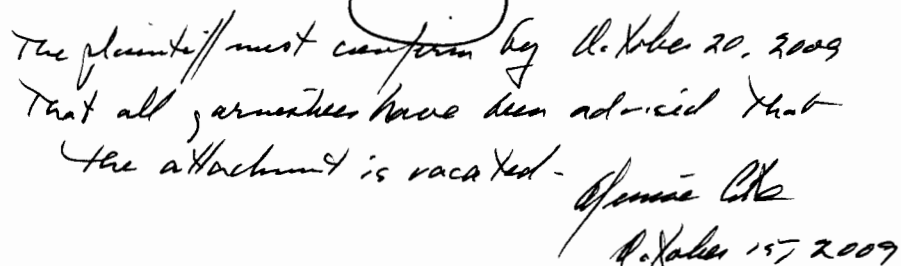 The plaintiff must confirm by October 20, 2009
that all garnishees have been advised that
the attachment is vacated.
Denise Cote
October 15, 2009